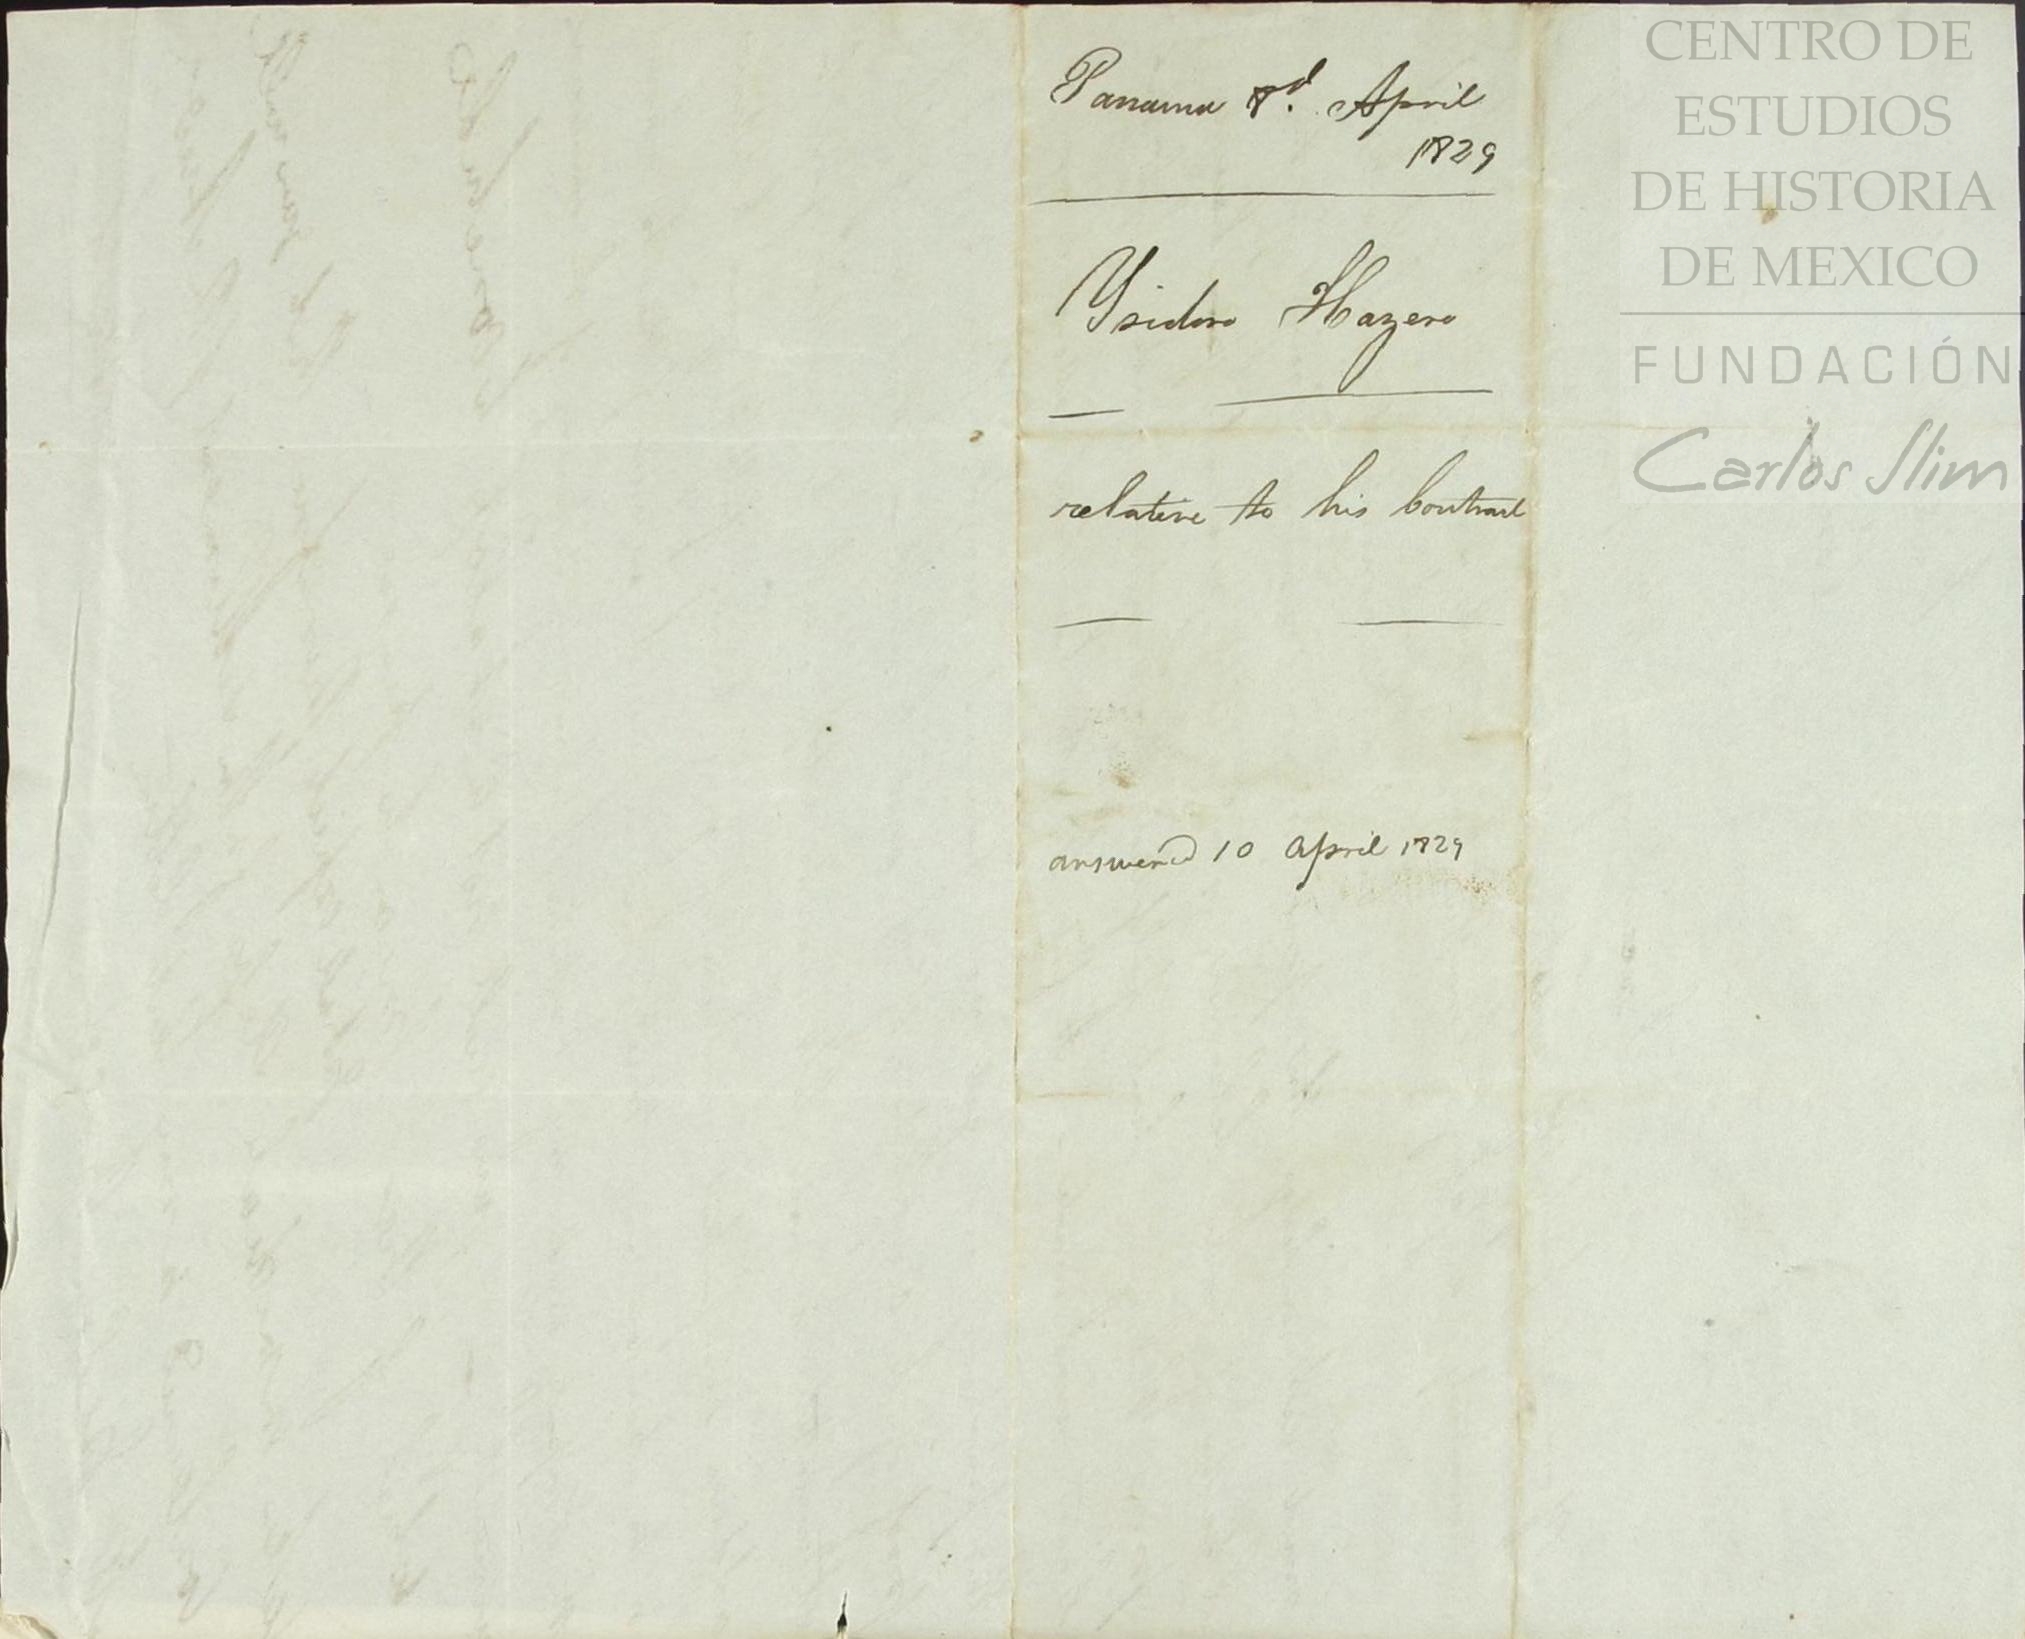 Panama 8d. April
1829
Ysidoro Hazera
relative to his Contract
answered 10 April 1829
CENTRO DE
ESTUDIOS
DE HISTORIA
DE MEXICO
FUNDACIÓN
Carlos Slim